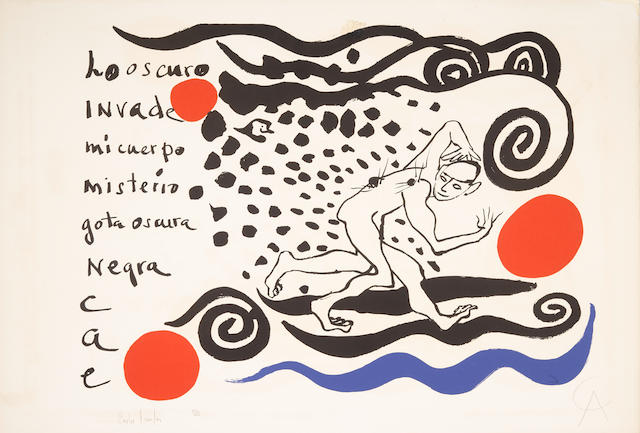 Lo oscuro
INvade
mi cuerpo
misterio
gota oscura
Negra
C
a
e
CA